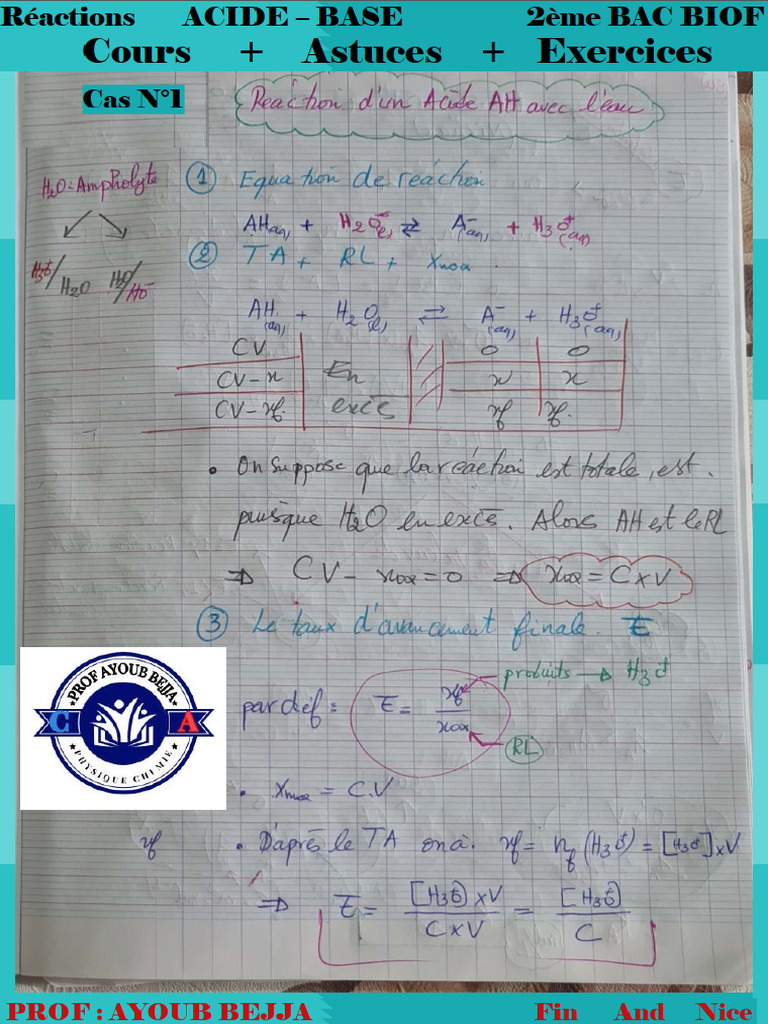 Réactions ACIDE – BASE 2ème BAC BIOF
Cours + Astuces + Exercices
Cas N°1
Reaction d'un Acide AH avec l'eau
H2O : Ampholyte
H3O+/H2O H2O/HO-
① Equation de reaction
AH(aq) + H2O(l) ⇄ A-(aq) + H3O+(aq)
② TA + RL + xmax.
AH(aq) + H2O(l) ⇄ A-(aq) + H3O+(aq)
CV En excès 0 0
CV-x x x
CV-xf. xf xf.
• On suppose que la réaction est totale, est.
puisque H2O en excès. Alors AH est le RL
⇒ CV - xmax = 0 ⇒ xmax = C×V
③ Le taux d'avancement finale. τ
par déf : τ = xf/xmax
produits → H3O+
RL
• xmax = C.V
xf • D'après le TA on a. xf = nf (H3O+) = [H3O+]×V
⇒ τ = [H3O+]×V / C×V = [H3O+] / C
PROF AYOUB BEJJA
C A
PHYSIQUE CHIMIE
PROF : AYOUB BEJJA Fin And Nice